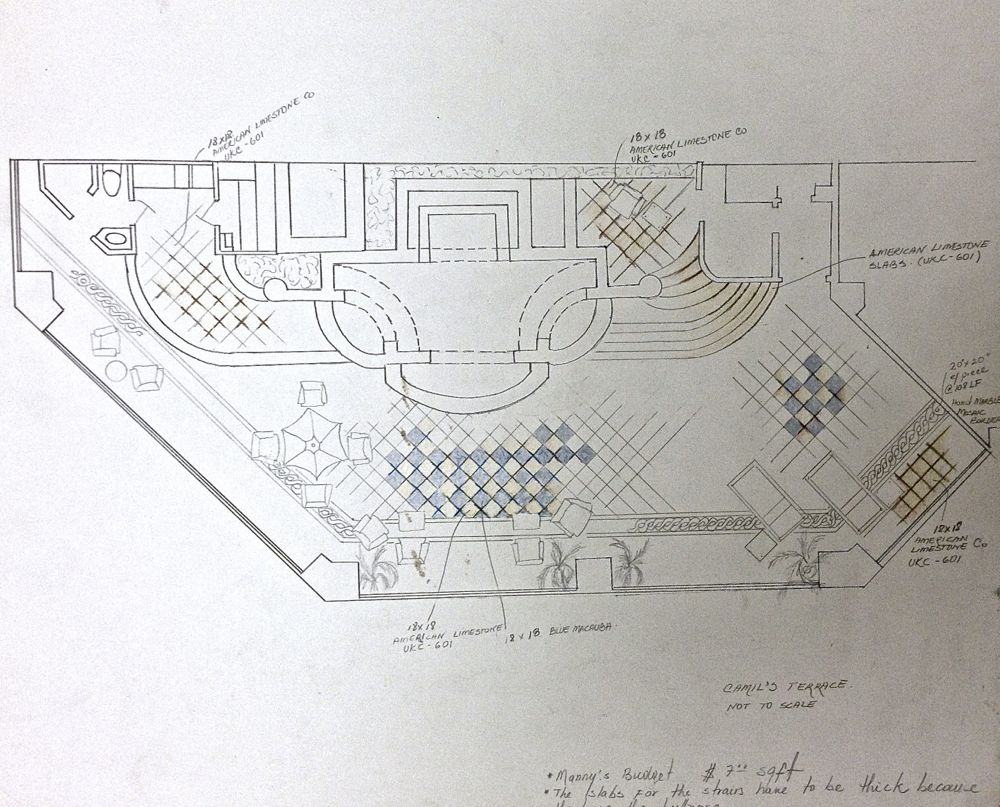 18x18
AMERICAN LIMESTONE CO
UKC-601
18 x 18
AMERICAN LIMESTONE CO
UKC - 601
AMERICAN LIMESTONE
SLABS. (UKC-601)
20"x20"
@ 108 LF
Hand MARBLE
MOSAIC
BORDER
18x18
AMERICAN
LIMESTONE Co
UKC-601
18x18
AMERICAN LIMESTONE
UKC-601
18 x 18 BLUE MACAUBA.
CAMIL'S TERRACE.
NOT TO SCALE
• Manny's Budget $ 7.00 sqft
• The slabs for the strairs have to be thick because